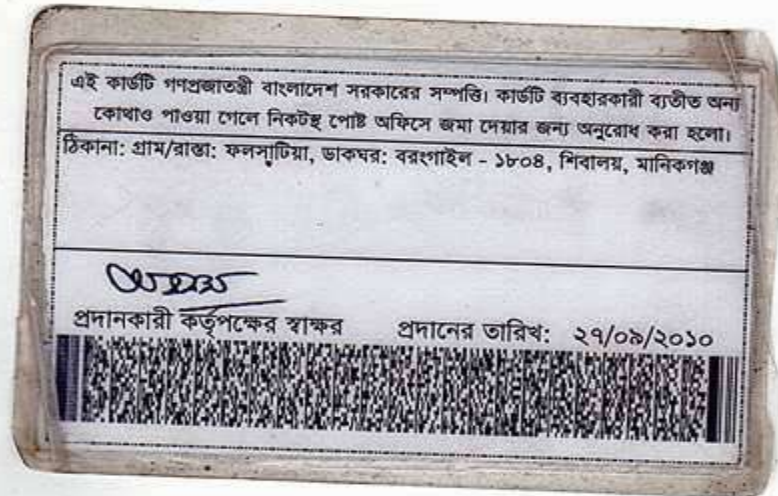 এই কার্ডটি গণপ্রজাতন্ত্রী বাংলাদেশ সরকারের সম্পত্তি। কার্ডটি ব্যবহারকারী ব্যতীত অন্য
কোথাও পাওয়া গেলে নিকটস্থ পোষ্ট অফিসে জমা দেয়ার জন্য অনুরোধ করা হলো।
ঠিকানা: গ্রাম/রাস্তা: ফলসাটিয়া, ডাকঘর: বরংগাইল - ১৮০৪, শিবালয়, মানিকগঞ্জ
প্রদানকারী কর্তৃপক্ষের স্বাক্ষর প্রদানের তারিখ: ২৭/০৯/২০১০